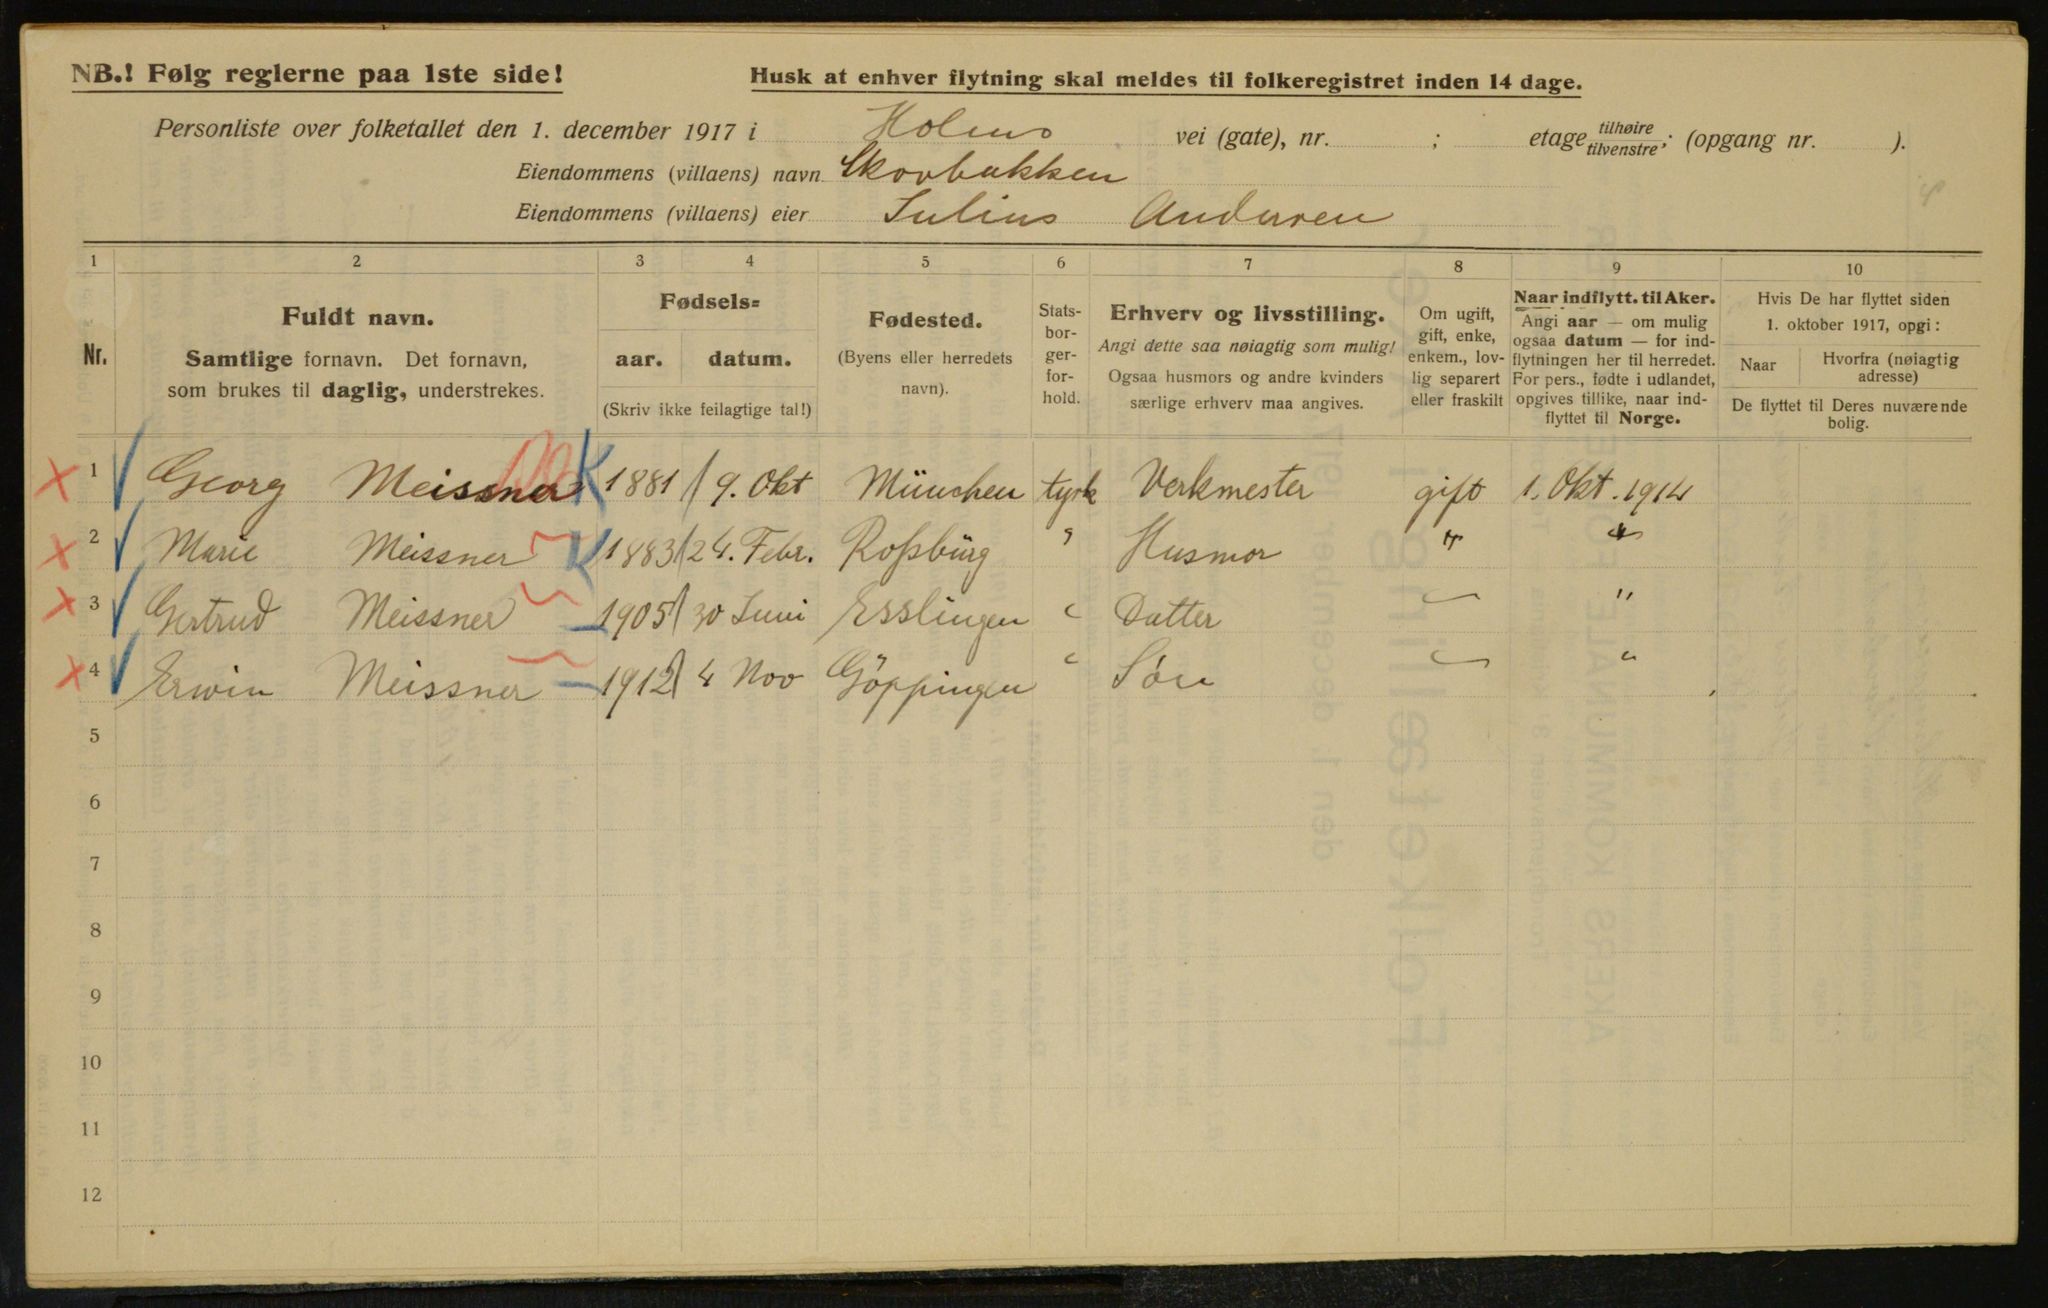 NB.! Følg reglerne paa 1ste side!
Husk at enhver flytning skal meldes til folkeregistret inden 14 dage.
Personliste over folketallet den 1. december 1917 i Holms vei (gate), nr. ; etage tilhøire tilvenstre; (opgang nr. ).
Eiendommens (villaens) navn Skovbakken
Eiendommens (villaens) eier Julius Andersen
1 2 3 4 5 6 7 8 9 10
Nr.
Fuldt navn.
Samtlige fornavn. Det fornavn,
som brukes til daglig, understrekes.
Fødsels=
aar. datum.
(Skriv ikke feilagtige tal!)
Fødested.
(Byens eller herredets
navn).
Stats-
bor-
ger-
for-
hold.
Erhverv og livsstilling.
Angi dette saa nøiagtig som mulig!
Ogsaa husmors og andre kvinders
særlige erhverv maa angives.
Om ugift,
gift, enke,
enkem., lov-
lig separert
eller fraskilt
Naar indflytt. til Aker.
Angi aar — om mulig
ogsaa datum — for ind-
flytningen her til herredet.
For pers., fødte i udlandet,
opgives tillike, naar ind-
flyttet til Norge.
Hvis De har flyttet siden
1. oktober 1917, opgi:
Naar
Hvorfra (nøiagtig
adresse)
De flyttet til Deres nuværende
bolig.
1 Georg Meissner K 1881 9. Okt München tysk Verkmester gift 1. Okt. 1914
2 Marie Meissner K 1883 24. Febr. Roßbürg " Husmor " "
3 Gertrud Meissner 1905 30 Juni Esslingen " Datter — "
4 Erwin Meissner 1912 4 Nov Göppingen " Søn — "
5
6
7
8
9
10
11
12